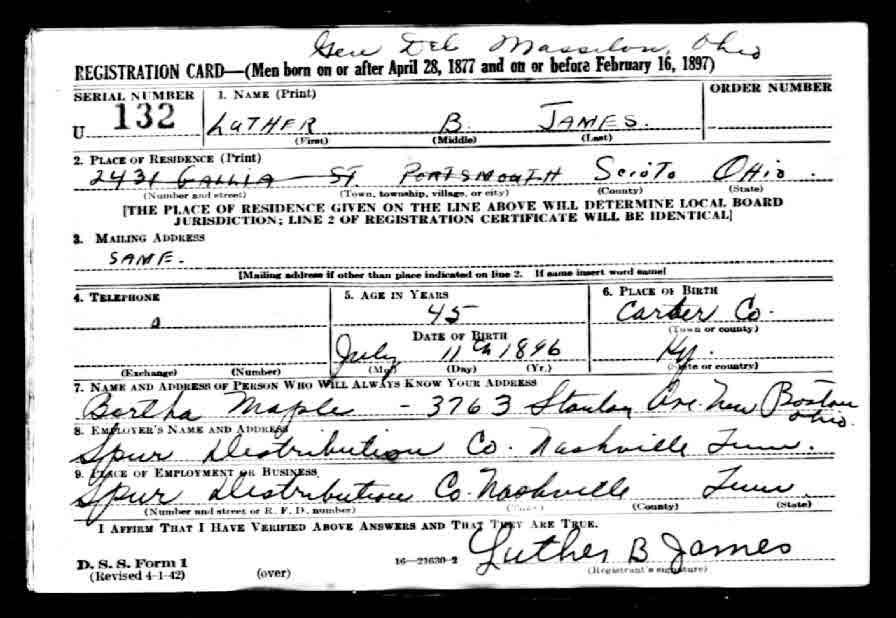 Gen Del Massilon, Ohio
REGISTRATION CARD—(Men born on or after April 28, 1877 and on or before February 16, 1897)
SERIAL NUMBER 1. NAME (Print) ORDER NUMBER
U 132 LUTHER B. JAMES.
(First) (Middle) (Last)
2. PLACE OF RESIDENCE (Print)
2431 GALLIA ST. PORTSMOUTH SCIOTO OHIO.
(Number and street) (Town, township, village, or city) (County) (State)
[THE PLACE OF RESIDENCE GIVEN ON THE LINE ABOVE WILL DETERMINE LOCAL BOARD
JURISDICTION; LINE 2 OF REGISTRATION CERTIFICATE WILL BE IDENTICAL]
3. MAILING ADDRESS
SAME.
[Mailing address if other than place indicated on line 2. If same insert word same]
4. TELEPHONE 5. AGE IN YEARS 6. PLACE OF BIRTH
0 45 Carter Co.
(Town or county)
DATE OF BIRTH
July 11th 1896 Ky.
(Exchange) (Number) (Mo.) (Day) (Yr.) (State or country)
7. NAME AND ADDRESS OF PERSON WHO WILL ALWAYS KNOW YOUR ADDRESS
Bertha Maple - 3763 Stanton Ave. New Boston
Ohio.
8. EMPLOYER'S NAME AND ADDRESS
Spur Distribution Co. Nashville Tenn.
9. PLACE OF EMPLOYMENT OR BUSINESS
Spur Distribution Co. Nashville Tenn.
(Number and street or R. F. D. number) (Town) (County) (State)
I AFFIRM THAT I HAVE VERIFIED ABOVE ANSWERS AND THAT THEY ARE TRUE.
Luther B James
D. S. S. Form 1
(Revised 4-1-42) (over) 16—21630-2 (Registrant's signature)